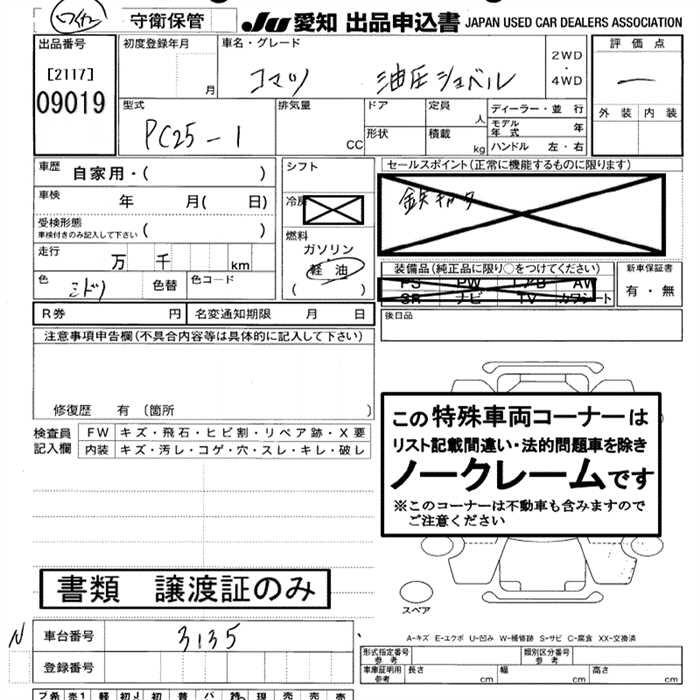 守衛保管
JU 愛知 出品申込書 JAPAN USED CAR DEALERS ASSOCIATION
出品番号 初度登録年月 車名・グレード 評価点
[2117] 2WD
09019 月 コマツ 油圧ショベル 4WD ー
型式 排気量 ドア 定員 ディーラー・並 行 外装 内装
PC25-1 人 モデル年式 年
CC 形状 積載 kg ハンドル 左・右
車歴 自家用・( ) シフト セールスポイント(正常に機能するものに限ります)
車検 年 月( 日) 冷房 鉄キャタ
受検形態 車検付きのみ記入して下さい ( ) 燃料
走行 万 千 km ガソリン
軽油 装備品(純正品に限り○をつけてください) 新車保証書
色 ミドリ 色替 色コード ( ) PS PW エアB AW 有・無
SR ナビ TV カワシート
R券 円 名変通知期限 月 日 後日品
注意事項申告欄(不具合内容等は具体的に記入して下さい)
修復歴 有 〔箇所 〕
検査員記入欄 FW キズ・飛石・ヒビ割・リペア跡・X要
内装 キズ・汚し・コゲ・穴・スレ・キレ・破し
この特殊車両コーナーは
リスト記載間違い・法的問題車を除き
ノークレームです
※このコーナーは不動車も含みますので
ご注意ください
書類 譲渡証のみ
スペア
A-キズ E-エクボ U-凹み W-補修跡 S-サビ C-腐食 XX-交換済
N 車台番号 3135
登録番号
型式指定番号 参考 類別区分番号 参考
車庫証明用 参考 長さ cm 幅 cm 高さ cm